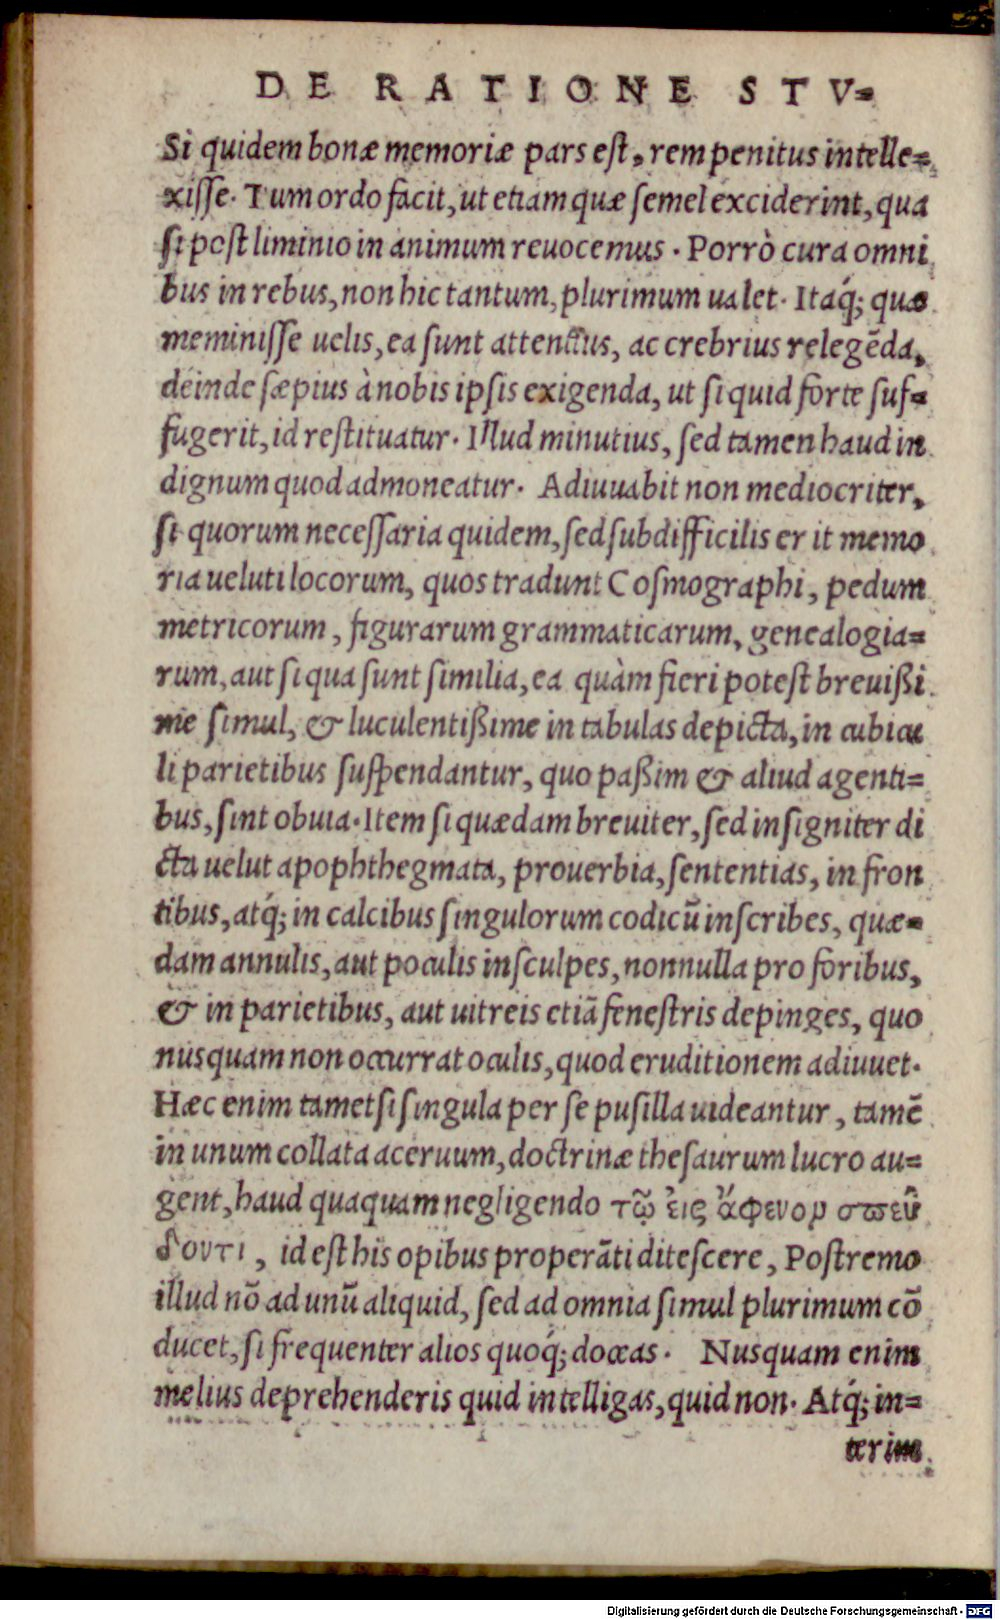 DE RATIONE STV=
Si quidem bonæ memoriæ pars eſt, rem penitus intelle=
xiſſe. Tum ordo facit, ut etiam quæ ſemel exciderint, qua
ſi poſt liminio in animum reuocemus. Porrò cura omni
bus in rebus, non hic tantum, plurimum ualet. Itaq́; quæ
meminiſſe uelis, ea ſunt attentius, ac crebrius relegẽda,
deinde ſæpius à nobis ipſis exigenda, ut ſi quid forte ſuf=
fugerit, id reſtituatur. Illud minutius, ſed tamen haud in
dignum quod admoneatur. Adiuuabit non mediocriter,
ſi quorum neceſſaria quidem, ſed ſubdifficilis er it memo
ria ueluti locorum, quos tradunt Coſmographi, pedum
metricorum, figurarum grammaticarum, genealogia=
rum, aut ſi qua ſunt ſimilia, ea quàm fieri poteſt breuißi
me ſimul, & luculentißime in tabulas depicta, in cubicu
li parietibus ſuſpendantur, quo paßim & aliud agenti=
bus, ſint obuia. Item ſi quædam breuiter, ſed inſigniter di
cta uelut apophthegmata, prouerbia, ſententias, in fron
tibus, atq́; in calcibus ſingulorum codicũ inſcribes, quæ=
dam annulis, aut poculis inſculpes, nonnulla pro foribus,
& in parietibus, aut uitreis etiã feneſtris depinges, quo
nusquam non occurrat oculis, quod eruditionem adiuuet.
Hæc enim tametſi ſingula per ſe puſilla uideantur, tamẽ
in unum collata aceruum, doctrinæ theſaurum lucro au=
gent, haud quaquam negligendo τῷ ἐις ἄφενον σπεύ
δοντι, id eſt his opibus properãti diteſcere, Poſtremo
illud nõ ad unũ aliquid, ſed ad omnia ſimul plurimum cõ
ducet, ſi frequenter alios quoq́; doceas. Nusquam enim
melius deprehenderis quid intelligas, quid non. Atq́; in=
terim
Digitalisierung gefördert durch die Deutsche Forschungsgemeinschaft - DFG